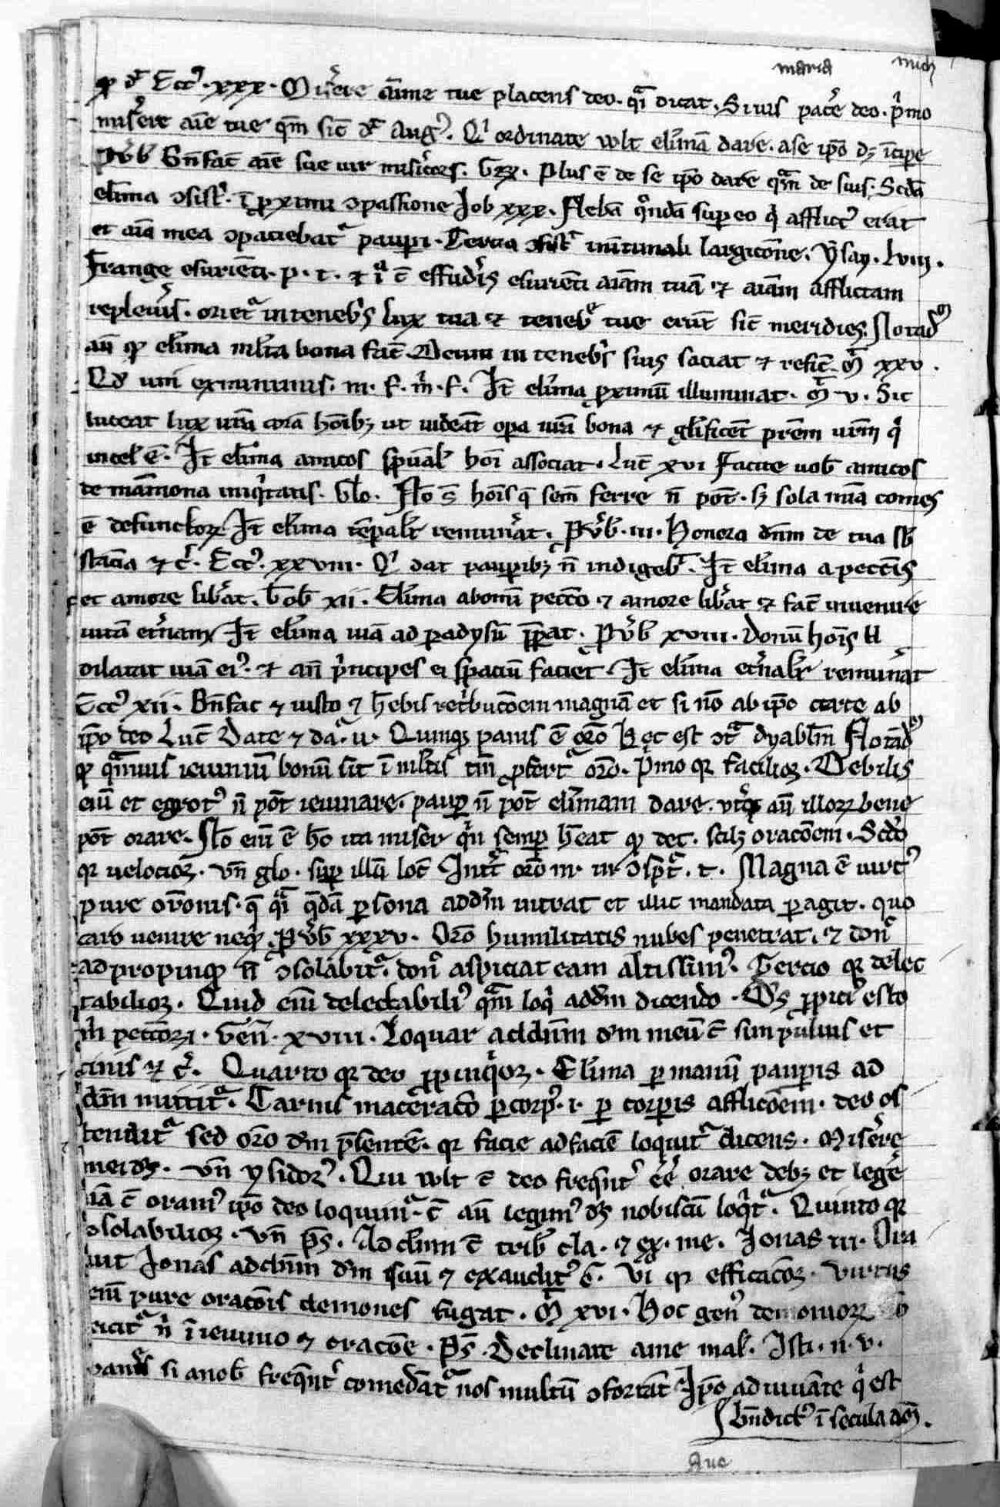 maria mich
ꝙ dr̄ Ecc᷒ . xxx . Miẜere aīme tue placens deo . qͣi dicat . Si uis pacẽ deo . pͥmo
misẽre aīe tue qm̄ sic̄ dr̄ Aug᷒ . Qͥ ordinate vlt elīmā dare . a se ip̄o dꝫ īcipe
Pͥub̄ Bn̄fac̄ aīe sue uir misẽicors . Plus ē de se ip̄o dare qͣm de suis . Scd̄a
elīma ↄsist᷒ . ī ꝓximi ↄpassione Job xxx . Flebā qͦndā super eo qͥ afflict᷒ erat
et aīa mea ↄpaciebatͬ pauꝑi . Tercia ↄsistͭ in largicōne . ysay . lviii .
Frange esurienti . p . t . ⁊ ī c̄ effuderis esurienti aīam tuā ⁊ aīam afflictam
repleueris . orietͬ in tenebris lux tua ⁊ tenebͤ tue erūt sic̄ meridies Notadͫ
aū ꝙ elīma ml̄ta bona fac̄ . Deum in tenebris suis saciat ⁊ refic̄ . Mͭ xxv .
Qd̄ uni ex minimis . m . f . m̄ . f . It̄ elīma ꝓximū illuminat . Mͭ v . Sic
luceat lux ur̄a corā hoībꝫ ut uideāt opa ur̄a bona ⁊ glīficent prēm ur̄m qͥ
in cel̄ ē . It̄ elīma amicos spūal̄ hoī associat . Luc̄ xvi Facite uob̄ amicos
de mammona iniqͥtatis . Glo . No s̄ hoīs q̄ sem̄ ferre n̄ pot̄ . sꝫ sola mīa comes
ē defunctoꝝ It̄ elīma tēpal̄r remun̄at . Pͥub̄ . iii . Honora dn̄m de tua sb̄
stācia ⁊ c̄ . Ecc᷒ . xxviii . Qͥ dat pauꝑibꝫ n̄ indigebͭ . It̄ elīma a pecc̄is
et a morte lib̄at . Tob̄ xii . Elīma ab om̄i pecc̄o ⁊ a morte lib̄at ⁊ fac̄ inuenire
uitā etn̄am It̄ elīma uiā ad paradysū p̄pat . Pͥub̄ xviii . Donū hoīs
dilatat uiā ei᷒ . ⁊ an̄ pͥncipes ei spaciū faciet . It̄ elīma etn̄al̄r remun̄at
Ecc᷒ xii . Bn̄fac ⁊ iusto ⁊ h̄ebis ret̄bucōem magnā et si nō ab ip̄o certe ab
ip̄o deo Luc̄ Date ⁊ daͣ . u . Quinqꝫ panis ē or̄o Hec est ↄtͣ dyablm̄ Notadͫ
ꝙ qͣmuis ieiuniū bonū sit ī ml̄tis tm̄ ꝓfertͬ or̄o . Pͥmo qr facilioꝛ . Debilis
eni et egrot᷒ n̄ pot̄ ieiunare . pauꝑ n̄ pot̄ elīmam dare . utͥqꝫ aū illoꝝ bene
pot̄ orare . No enī ē h̄o ita miser qͥn semꝑ h̄eat ꝙ det . scilꝫ oracōem . Scd̄o
qr uelocioꝛ . vn̄ glo . suꝑ illū loc̄ Intͬt or̄o m̄ . in ↄspc̄tͧ . t . Magna ē uirt᷒
pure or̄onis . q̄ qͣi qͥdā ꝑsona ad dn̄m intrat et illic mandata ꝑagit . quo
caro uenire neqͥt . Pͥub̄ xxxv . Or̄o humilitatis nubes penetrat . ⁊ donͨ
ad propinqꝫ n̄ ↄsolabitͬ . donͨ aspiciat eam altissim᷒ . Tercio qr delec
tabilioꝛ . Quid enī delectabili᷒ qͣm loqͥ ad dn̄m dicendo . ds̄ ꝓpici᷒ esto
m̄ pecctori . Gen̄ . xviii . Loquar ad dn̄m dn̄m meū c̄ sim puluis et
cinis ⁊ c̄ . Quarto qr deo ꝓpinqͥoꝛ . Elīma ꝑ manū pauꝑis ad
dn̄m mittitͬ . Carnis macēracō ꝑ corp᷒ . i . ꝑ corꝑis afflicōem . deo os
tenditͬ sed or̄o dn̄m p̄sentē . qr facie ad faciē loquitͬ dicens . Misēre
mei ds̄ . vn̄ ysidoꝛ᷒ . Qui vlt c̄ deo freqn̄t᷒ eē orare debꝫ et legē
nā c̄ oram᷒ ip̄o deo loquimͬ . c̄ aū legim᷒ ds̄ nobiscū loqͥtͬ . Quinto qr
ↄsolabilioꝛ . vn̄ ps̄ . Ad dn̄m c̄ trib̄ cla . ⁊ ex . me . Jonas iii . Ora
uit Jonas ad dn̄m dn̄m suū ⁊ exaudit᷒ ē . Vi qr efficacioꝛ . Virtus
enī pure oracōis demones fugat . Mͭ xvi . Hoc gen᷒ demonioꝝ n̄
eicitͬ nͥ ī ieiunio ⁊ oracōe . Ps̄ . Declinate a me mal̄ . Isti . n . v .
panes si a nob̄ freqn̄t᷒ comedātͬ nos multū ↄfortāt Ip̄o adiuuāte qͥ est
bn̄dict᷒ ī secula am̄ .
Aue